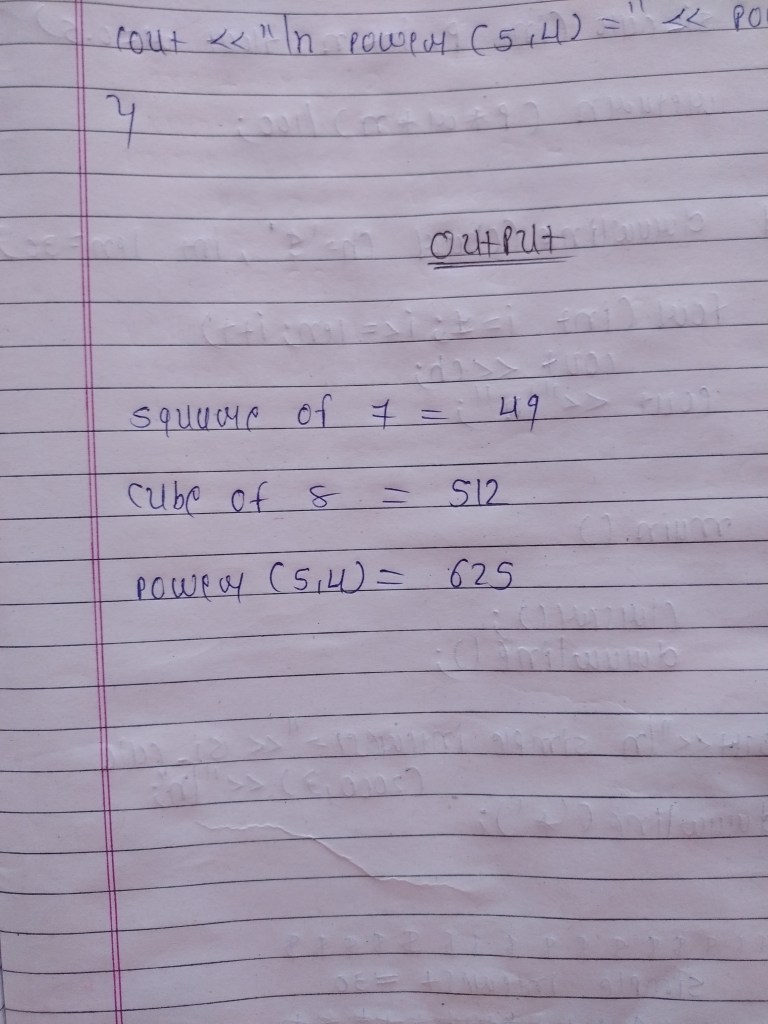 cout << "\n power (5,4) =" << po
}
Output
square of 7 = 49
cube of 8 = 512
power (5,4) = 625